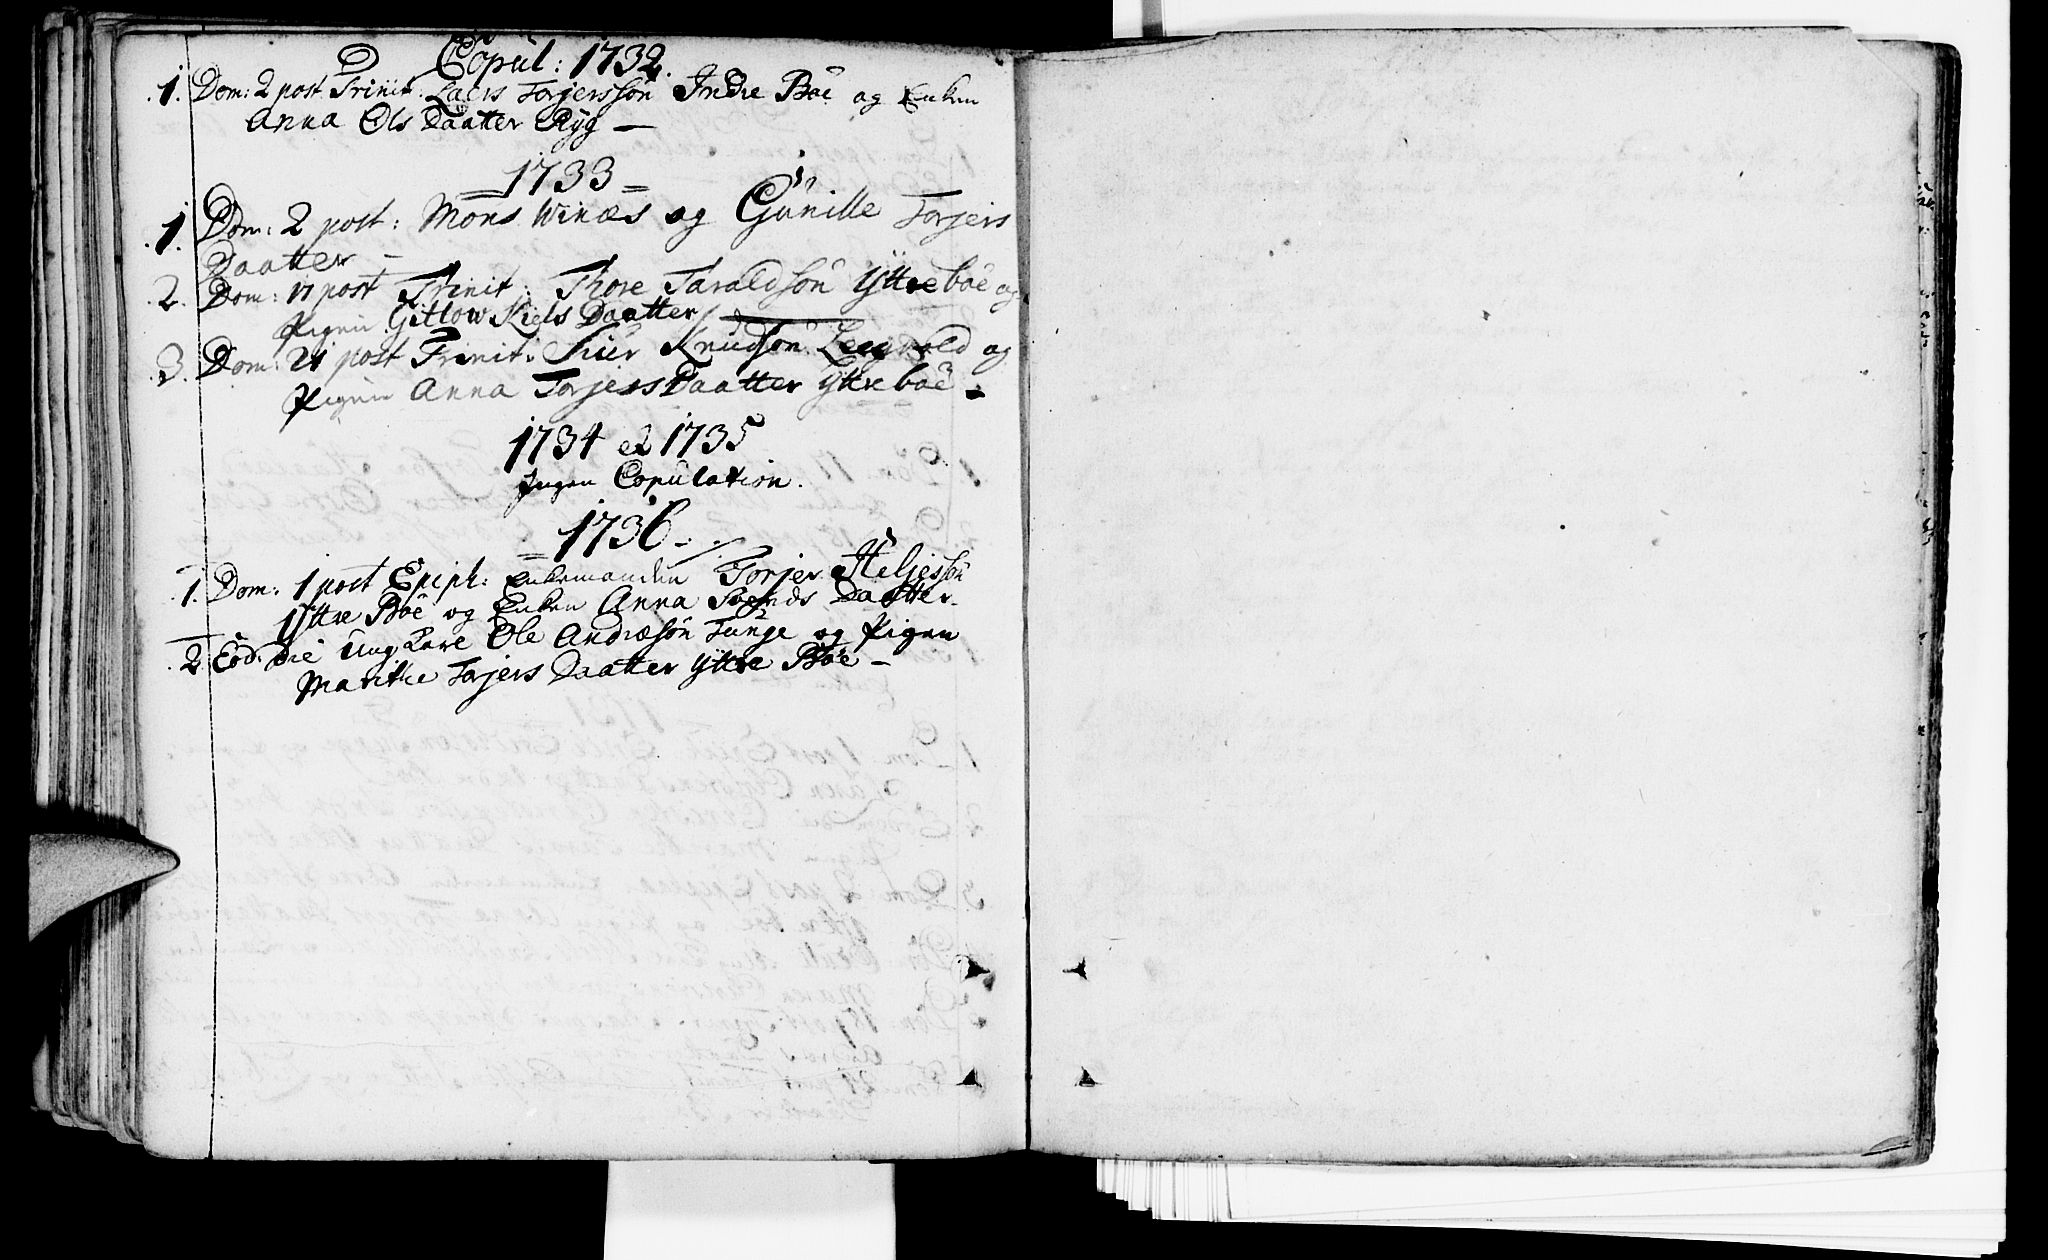 Copul: 1732.
.1. Dom: 2 post Trinit: Laers Torjersson Indre Boe og Enken
Anna Ols Daatter Ryg —
= 1733 =
.1. Dom: 2 post: Mons Winæs og Gunille Torjers
Daatter —
.2. Dom: 17 post Trinit: Thore Taraldson Yttre boe og
Pigen Gitlow Kiels Daatter
.3. Dom: 21 post Trinit: Siur Knudson og
Pigen Anna Torjers Daatter Yttre boe —
1734 et 1735
Ingen Copulation.
= 1736 -
.1. Dom: 1 post Epiph: Enkemanden Torjer Heljesson
Yttre Boe og Enken Anna Daatter.
.2 Eod: die Ung Karl Ole Andræson Tunge og Pigen
Marithe Torjers Daatter Yttre Boe —